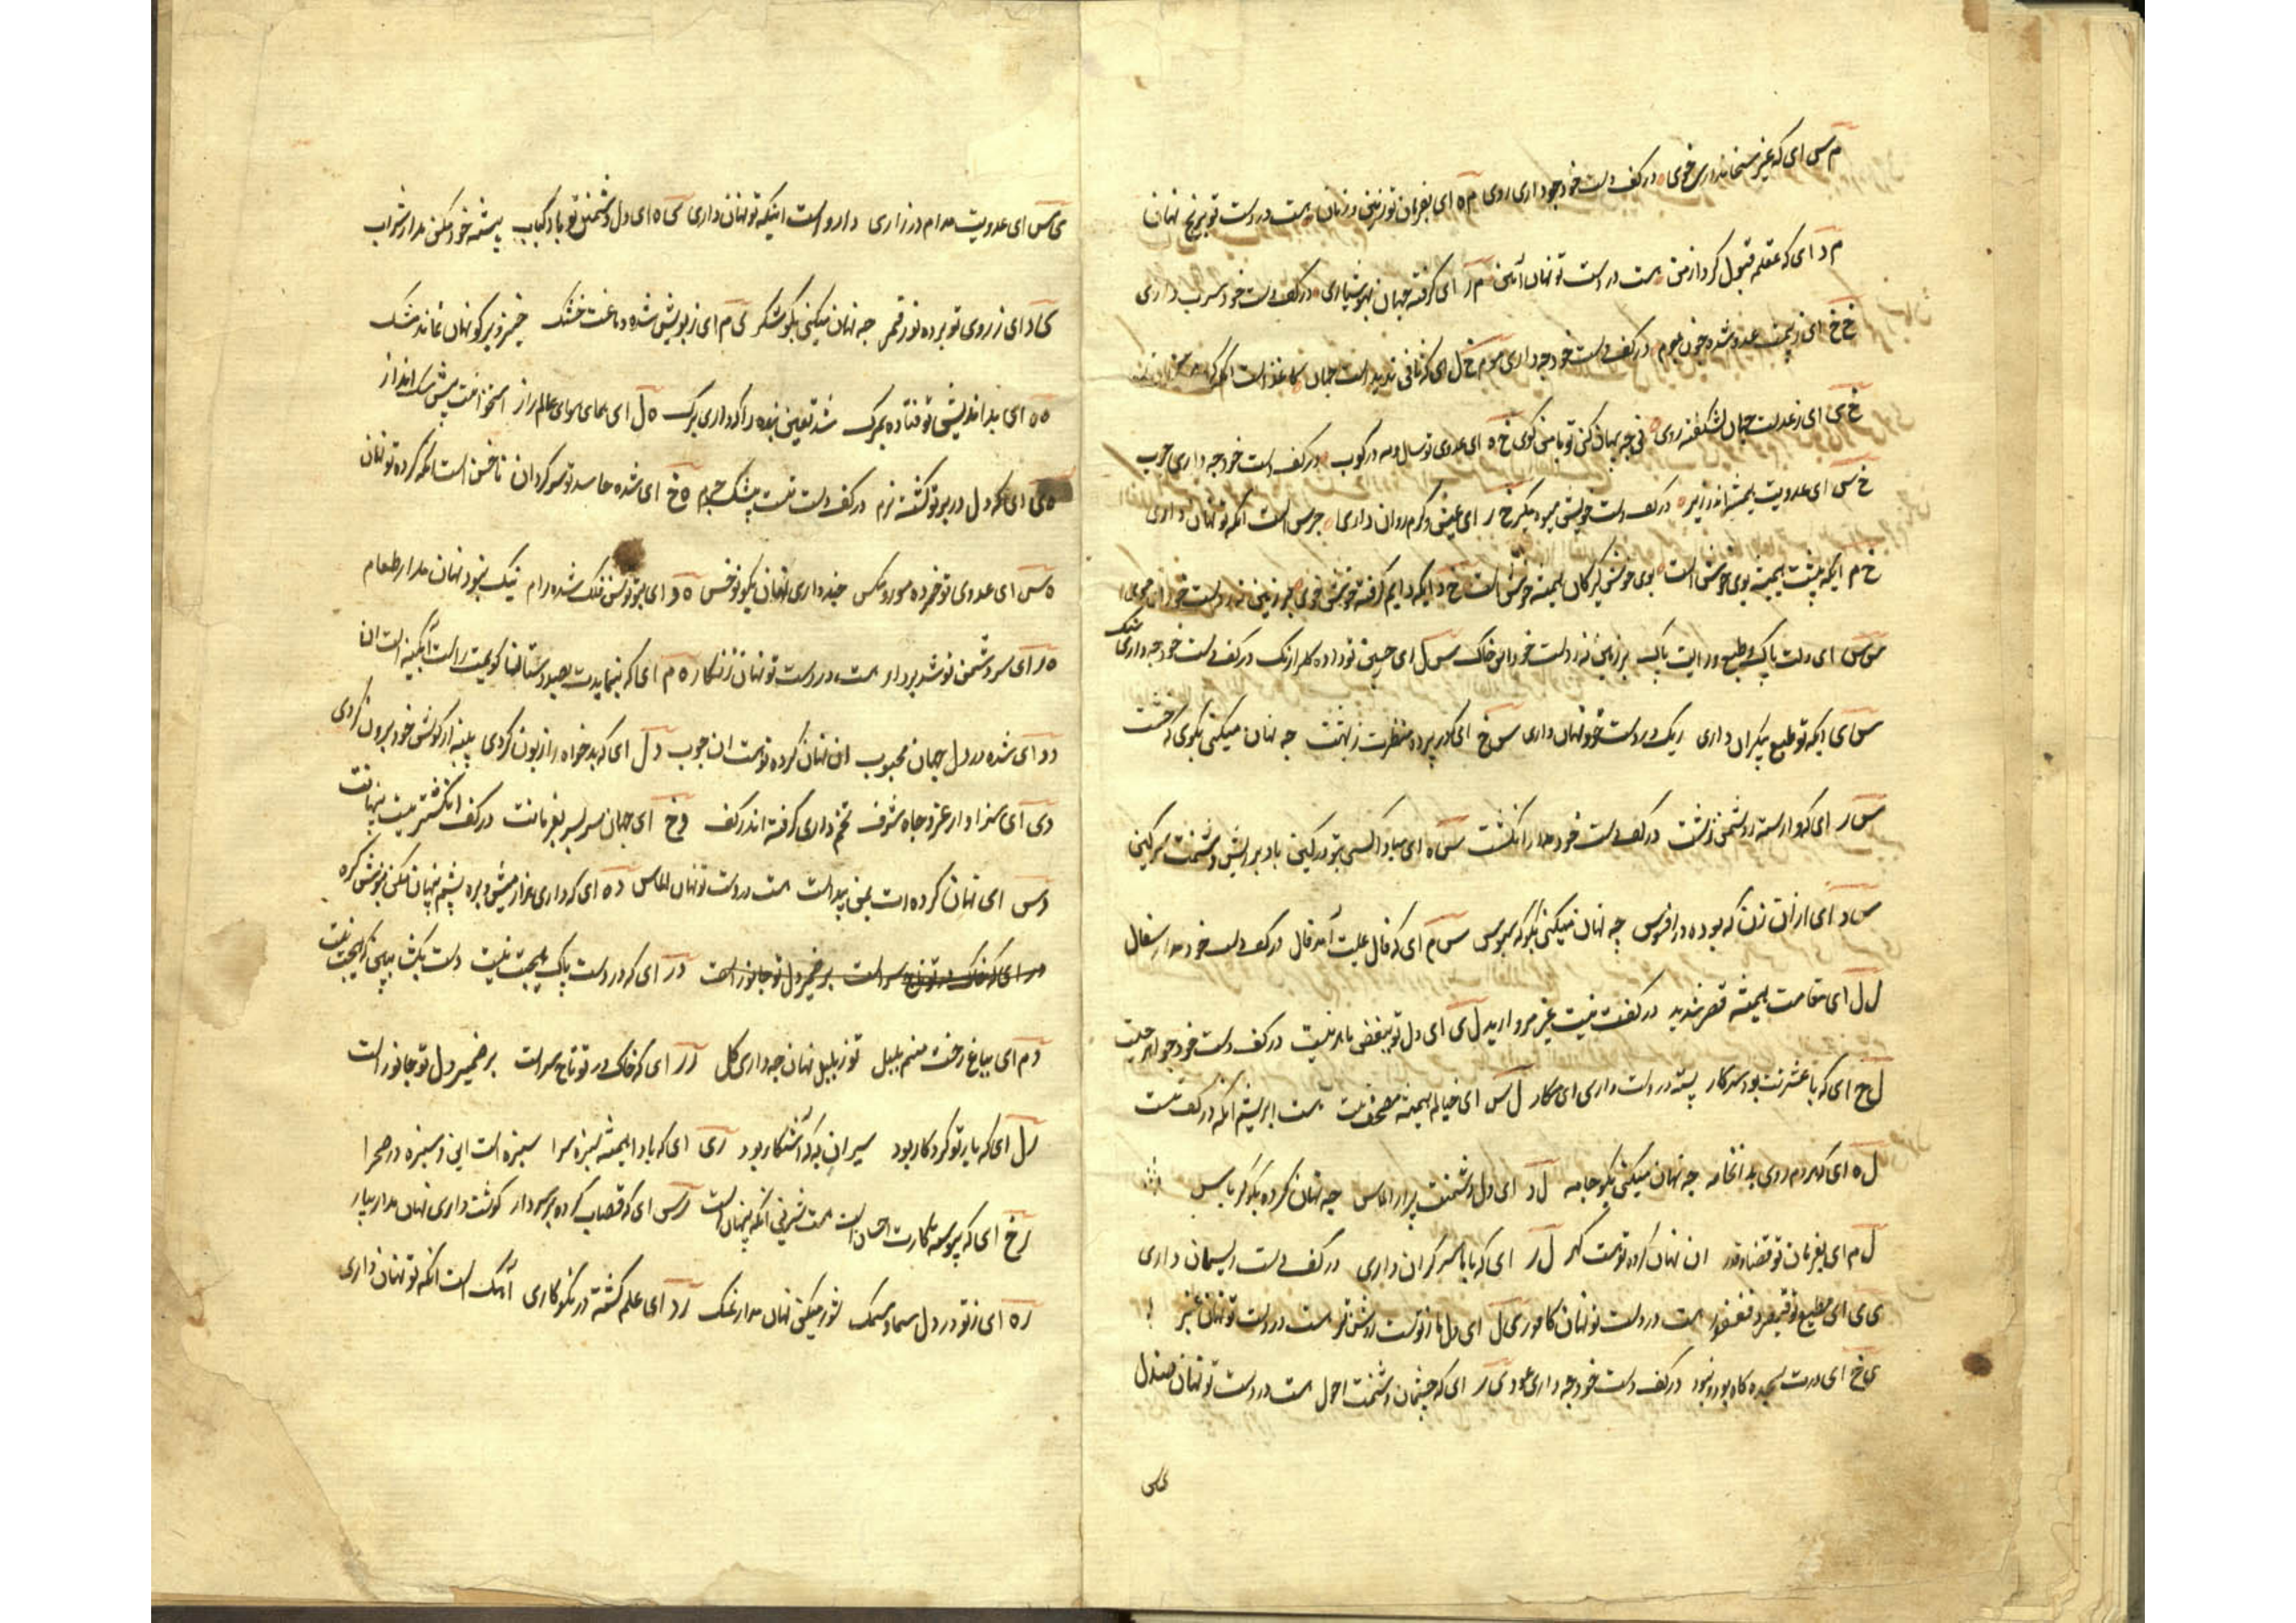 م س ای که غیر سخا نداری خوی در کف دست خود چه داری روی م ه ای بفرمان تو زمین و زمان هست در دست تو برنج نهان
م د ای که عقلم قبول کرد از من هست در دست تو نهان آهن م ر ای گرفته جهان بهوشیاری در کف دست خود سرب داری
خ خ ای ز بیمت عدو شده خون در کف دست خود چه داری موم خ ل ای که ثانی ندیده است جهان کاغذ است آنکه
خ ی ای ز عدلت جهان شکفته روی نی چه پنهان کنی تو با من کوی خ ه ای عدوی تو سال و مه در کوب در کف دست خود چه داری چوب
خ س ای عدویت همیشه اندر زیر در کف دست خویش میوه مگیر خ ر ای عیش و کرم روان داری جرس است آنکه تو نهان داری
خ م ایکه پیشت همیشه بوی خوش است بوی خوش گیر کان همیشه خوش است خ د ایکه دایم گرفته خوش خوی
س س ای دلت پاک و طبع و رایت پاک بر زمین نه ز دست خود این خاک س ل ای جبین تو داده کلرا رنک در کف دست خود چه داری سنک
س ی ایکه تو طبع بیکران داری ریک در دست خود نهان داری س خ ای که در پرده منظرت زیهشت چه نهان میکنی بکوی که خشت
س ر ای که وارسته ز دشمنی زشت در کف دست خود مدار انکشت س ه ای مبادا کسی بتو در کین باد بر ریش دشمنت سرکین
س د ای از آن زن که بوده در افسوس چه نهان میکنی بکو که سبوس س م ای که فال علیت آمد فال در کف دست خود مدار سفال
ل ل ای مقامت همیشه قصر شدید در کفت نیست غیر مروارید ل ی ای دل تو ببغض مایل نیست در کف دست خود جواهر چیست
ل خ ای که با عشرتت بود سرکار پسته در دست داری ای مکار ل س ای خیالم همیشه مصحف تست هست ابریشم آنکه در کف تست
ل ه ای که مردم روی بد آنجامه چه نهان میکنی بکو جامه ل د ای دل دشمنت پر از الماس چه نهان کرده بکو کرباس
ل م ای بفرمان تو قضا و قدر آن نهان کرده توست کهر ل ر ای که با ما سر کران داری در کف دست ریسمان داری
ی ی ای مطیع تو قیصر و فغفور هست در دست تو نهان کافور ی ل ای دل ما ز توست روشن تر هست در دست تو نهان عنبر
ی خ ای درت سجده کاه بود و نبود در کف دست خود چه داری عود ی ر ای که چشمان دشمنت احول هست در دست تو نهان صندل
ی س
ی س ای عدویت مدام در زاری دارو است اینکه تو نهان داری ی ه ای دل دشمن تو باد کباب پیشه خود مکن مدار شراب
ی د ای ز روی تو برده نور قمر چه نهان میکنی بکو شکر ی م ای ز بویش شده دماغت خشک خیز و بر کو نهان نماند مشک
ه ه ای بد اندیش تو فتاده بمرک شد تعین بنده را که داری برک ه ل ای همای هوای عالم راز استخوانت پیش سک انداز
ه ی ای که دل در بر تو کشته نرم در کف دست تست پشک چرم ه خ ای شده حاسد تو سر کردان ناخن است آنکه کرده تو نهان
ه س ای عدوی تو خرده مور و مکس چند داری نهان بکو تو خس ه د ای بتو توسن فلک شده رام نیک نبود نهان مدار طعام
ه ر ای سر دشمن تو شد بر دار هست در دست تو نهان زنکار ه م ای که بنمایدت بصد دستان کویمت راست آبکینه است آن
د د ای شده در دل جهان محبوب آن نهان کرده توست آن چوب د ل ای که بدخواه را زبون کردی پنبه از کوش خود برون کردی
د ی ای سزاوار عز و جاه و شرف تخم داری کرفته اندر کف د خ ای جهان سر بسر بفرمانت در کف انکشتریست پنهانت
د س ای نهان کرده ات بمن پیداست هست در دست تو نهان الماس د ه ای که داری هزار میش و بره پشم پنهان مکن بزیر کره
د ر ای که در دست پاک هیچت نیست دست بکشا ببین که هیچت نیست
د م ای بباغ رخت منم بلبل تو ز بلبل نهان چه داری کل ر ر ای که خاک در تو تاج سر است بر ضمیر دل تو جانور است
ر ل ای که یار تو کردکار بود سیر آن به که آشکار بود ر ی ای که بادا همیشه سبزه سرا سبزه است این و سبزه در صحرا
ر خ ای که پیوسته کارت احسان است هست شیرینی آنکه پنهان است ر س ای که قصاب کرده بر سر دار کوشت داری نهان مدار بیار
ر ه ای ز تو در دل سما و سمک شور میکنی نهان مدار نمک ر د ای علم کشته در نکوکاری آهک است آنکه تو نهان داری